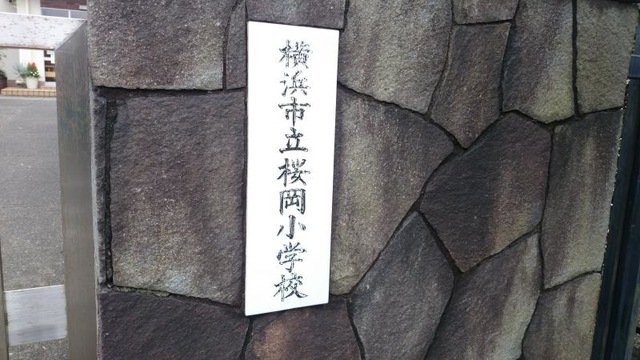 横浜市立桜岡小学校